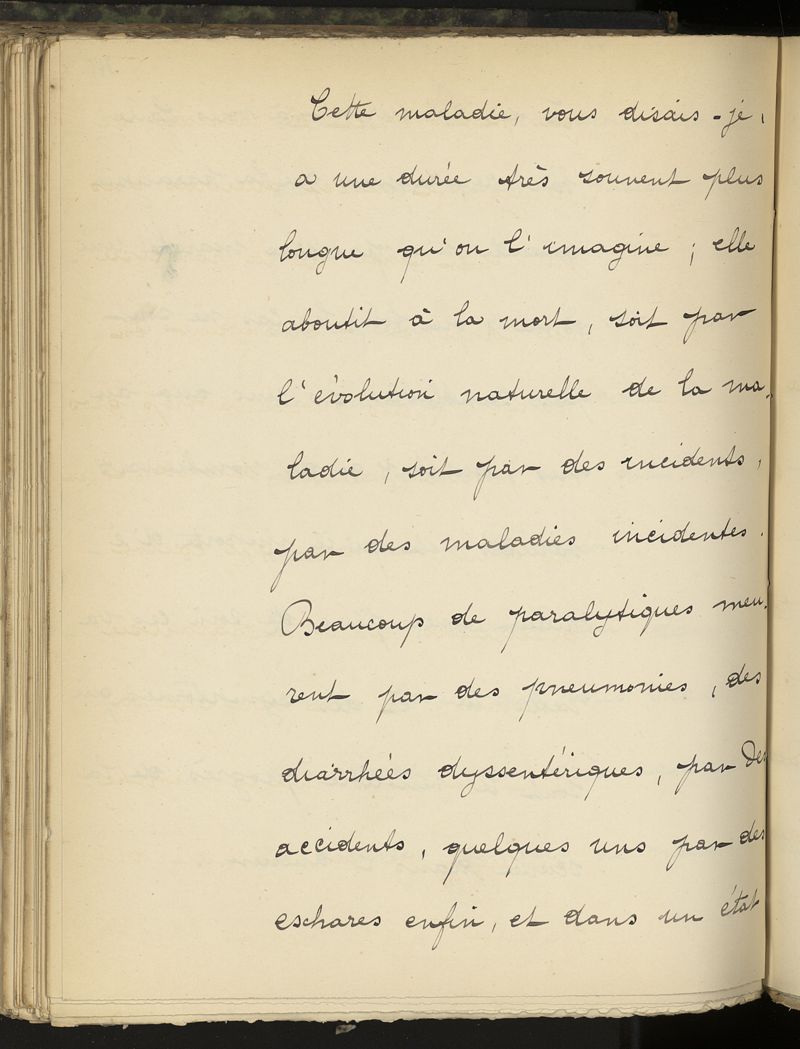 Cette maladie, vous disais-je,
a une durée très souvent plus
longue qu'on l'imagine ; elle
aboutit à la mort, soit par
l'évolution naturelle de la ma-
ladie, soit par des incidents,
par des maladies incidentes.
Beaucoup de paralytiques meu-
rent par des pneumonies, des
diarrhées dyssentériques, par des
accidents, quelques uns par des
eschares enfin, et dans un état